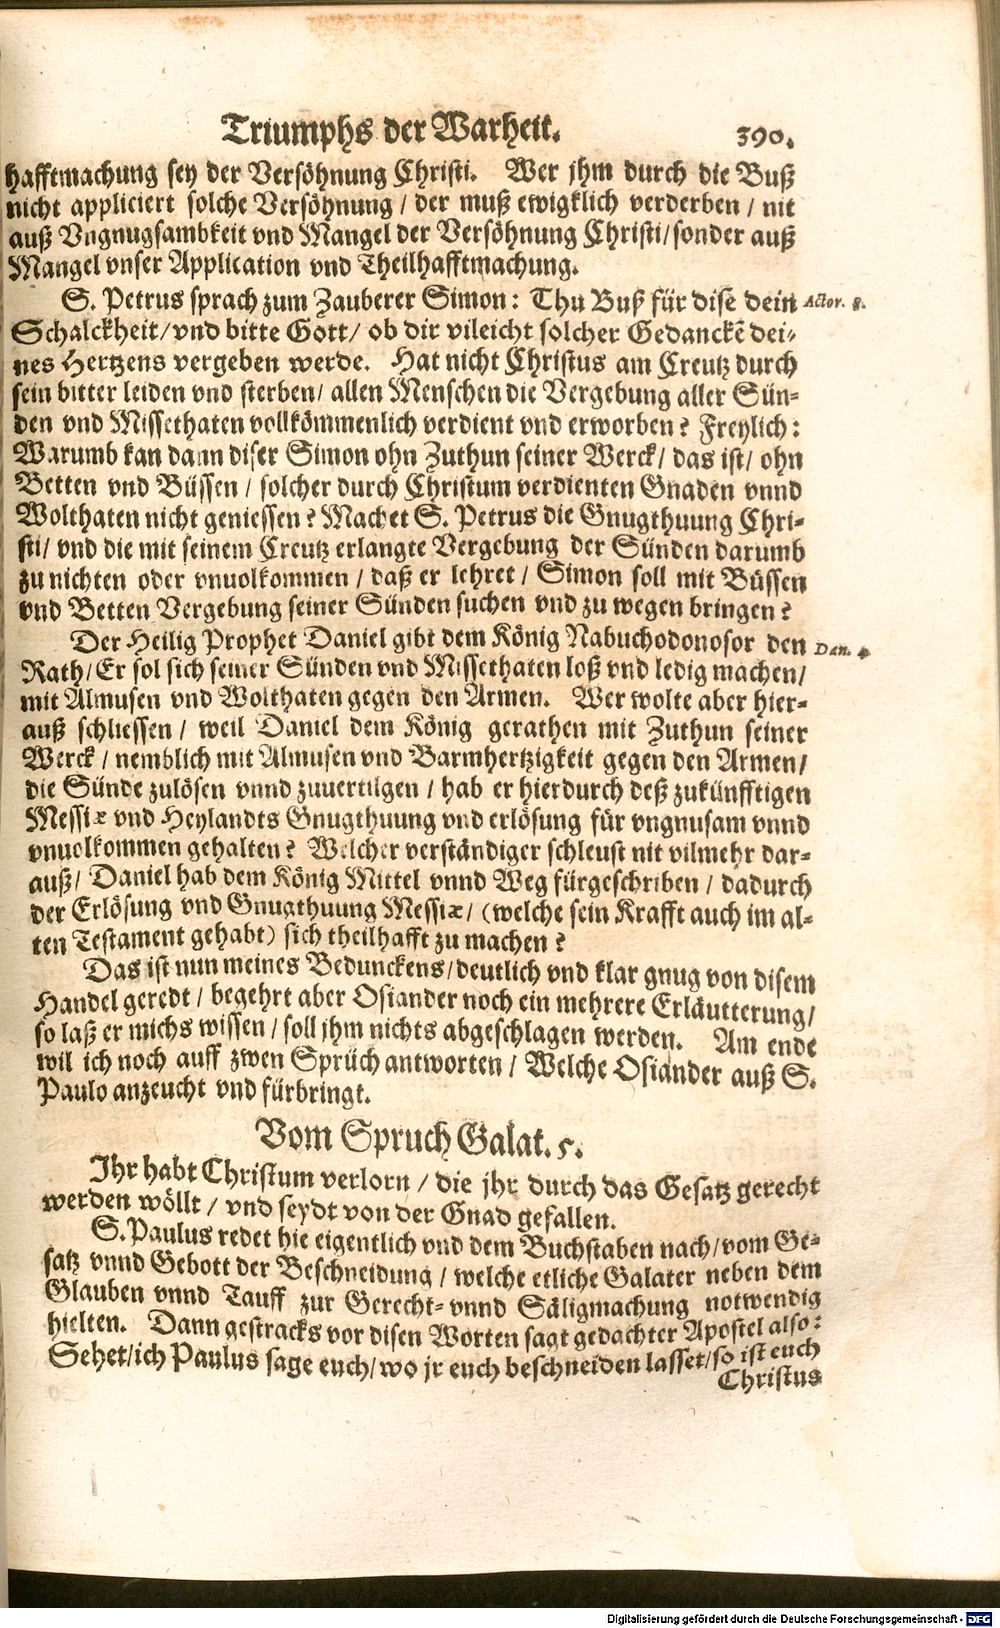 Triumphs der Warheit. 390.
hafftmachung sey der Versöhnung Christi. Wer jhm durch die Buß
nicht appliciert solche Versöhnung / der muß ewigklich verderben / nit
auß Vngnugsambkeit vnd Mangel der Versöhnung Christi / sonder auß
Mangel vnser Application vnd Theilhafftmachung.
S. Petrus sprach zum Zauberer Simon: Thu Buß für dise dein Actor. 8.
Schalckheit / vnd bitte Gott / ob dir vileicht solcher Gedanckẽ dei-
nes Hertzens vergeben werde. Hat nicht Christus am Creutz durch
sein bitter leiden vnd sterben / allen Menschen die Vergebung aller Sün-
den vnd Missethaten vollkömmenlich verdient vnd erworben? Freylich:
Warumb kan dann diser Simon ohn Zuthun seiner Werck / das ist / ohn
Betten vnd Büssen / solcher durch Christum verdienten Gnaden vnnd
Wolthaten nicht geniessen? Machet S. Petrus die Gnugthuung Chri-
sti / vnd die mit seinem Creutz erlangte Vergebung der Sünden darumb
zu nichten oder vnuolkommen / daß er lehret / Simon soll mit Büssen
vnd Betten Vergebung seiner Sünden suchen vnd zu wegen bringen?
Der Heilig Prophet Daniel gibt dem König Nabuchodonosor den Dan. 4.
Rath / Er sol sich seiner Sünden vnd Missethaten loß vnd ledig machen /
mit Almusen vnd Wolthaten gegen den Armen. Wer wolte aber hier-
auß schliessen / weil Daniel dem König gerathen mit Zuthun seiner
Werck / nemblich mit Almusen vnd Barmhertzigkeit gegen den Armen /
die Sünde zulösen vnnd zuuertilgen / hab er hierdurch deß zukünfftigen
Messiæ vnd Heylandts Gnugthuung vnd erlösung für vngnusam vnnd
vnuolkommen gehalten? Welcher verständiger schleust nit vilmehr dar-
auß / Daniel hab dem König Mittel vnnd Weg fürgeschriben / dadurch
der Erlösung vnd Gnugthuung Messiæ / (welche sein Krafft auch im al-
ten Testament gehabt) sich theilhafft zu machen?
Das ist nun meines Bedunckens / deutlich vnd klar gnug von disem
Handel geredt / begehrt aber Osiander noch ein mehrere Erläutterung /
so laß er michs wissen / soll jhm nichts abgeschlagen werden. Am ende
wil ich noch auff zwen Sprüch antworten / Welche Osiander auß S.
Paulo anzeucht vnd fürbringt.
Vom Spruch Galat. 5.
Ihr habt Christum verlorn / die jhr durch das Gesatz gerecht
werden wöllt / vnd seydt von der Gnad gefallen.
S. Paulus redet hie eigentlich vnd dem Buchstaben nach / vom Ge-
satz vnnd Gebott der Beschneidung / welche etliche Galater neben dem
Glauben vnnd Tauff zur Gerecht- vnnd Säligmachung notwendig
hielten. Dann gestracks vor disen Worten sagt gedachter Apostel also:
Sehet / ich Paulus sage euch / wo jr euch beschneiden lasset / so ist euch
Christus
Digitalisierung gefördert durch die Deutsche Forschungsgemeinschaft - DFG